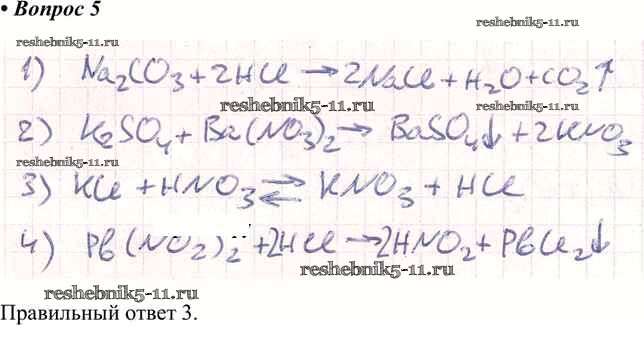 • Вопрос 5
reshebnik5-11.ru
reshebnik5-11.ru
1) Na₂CO₃ + 2HCl → 2NaCl + H₂O + CO₂↑
reshebnik5-11.ru
reshebnik5-11.ru
reshebnik5-11.ru
2) K₂SO₄ + Ba(NO₃)₂ → BaSO₄↓ + 2KNO₃
reshebnik5-11.ru
3) KCl + HNO₃ ⇄ KNO₃ + HCl
reshebnik5-11.ru
4) Pb(NO₂)₂ + 2HCl → 2HNO₂ + PbCl₂↓
reshebnik5-11.ru
reshebnik5-11.ru
Правильный ответ 3.
reshebnik5-11.ru